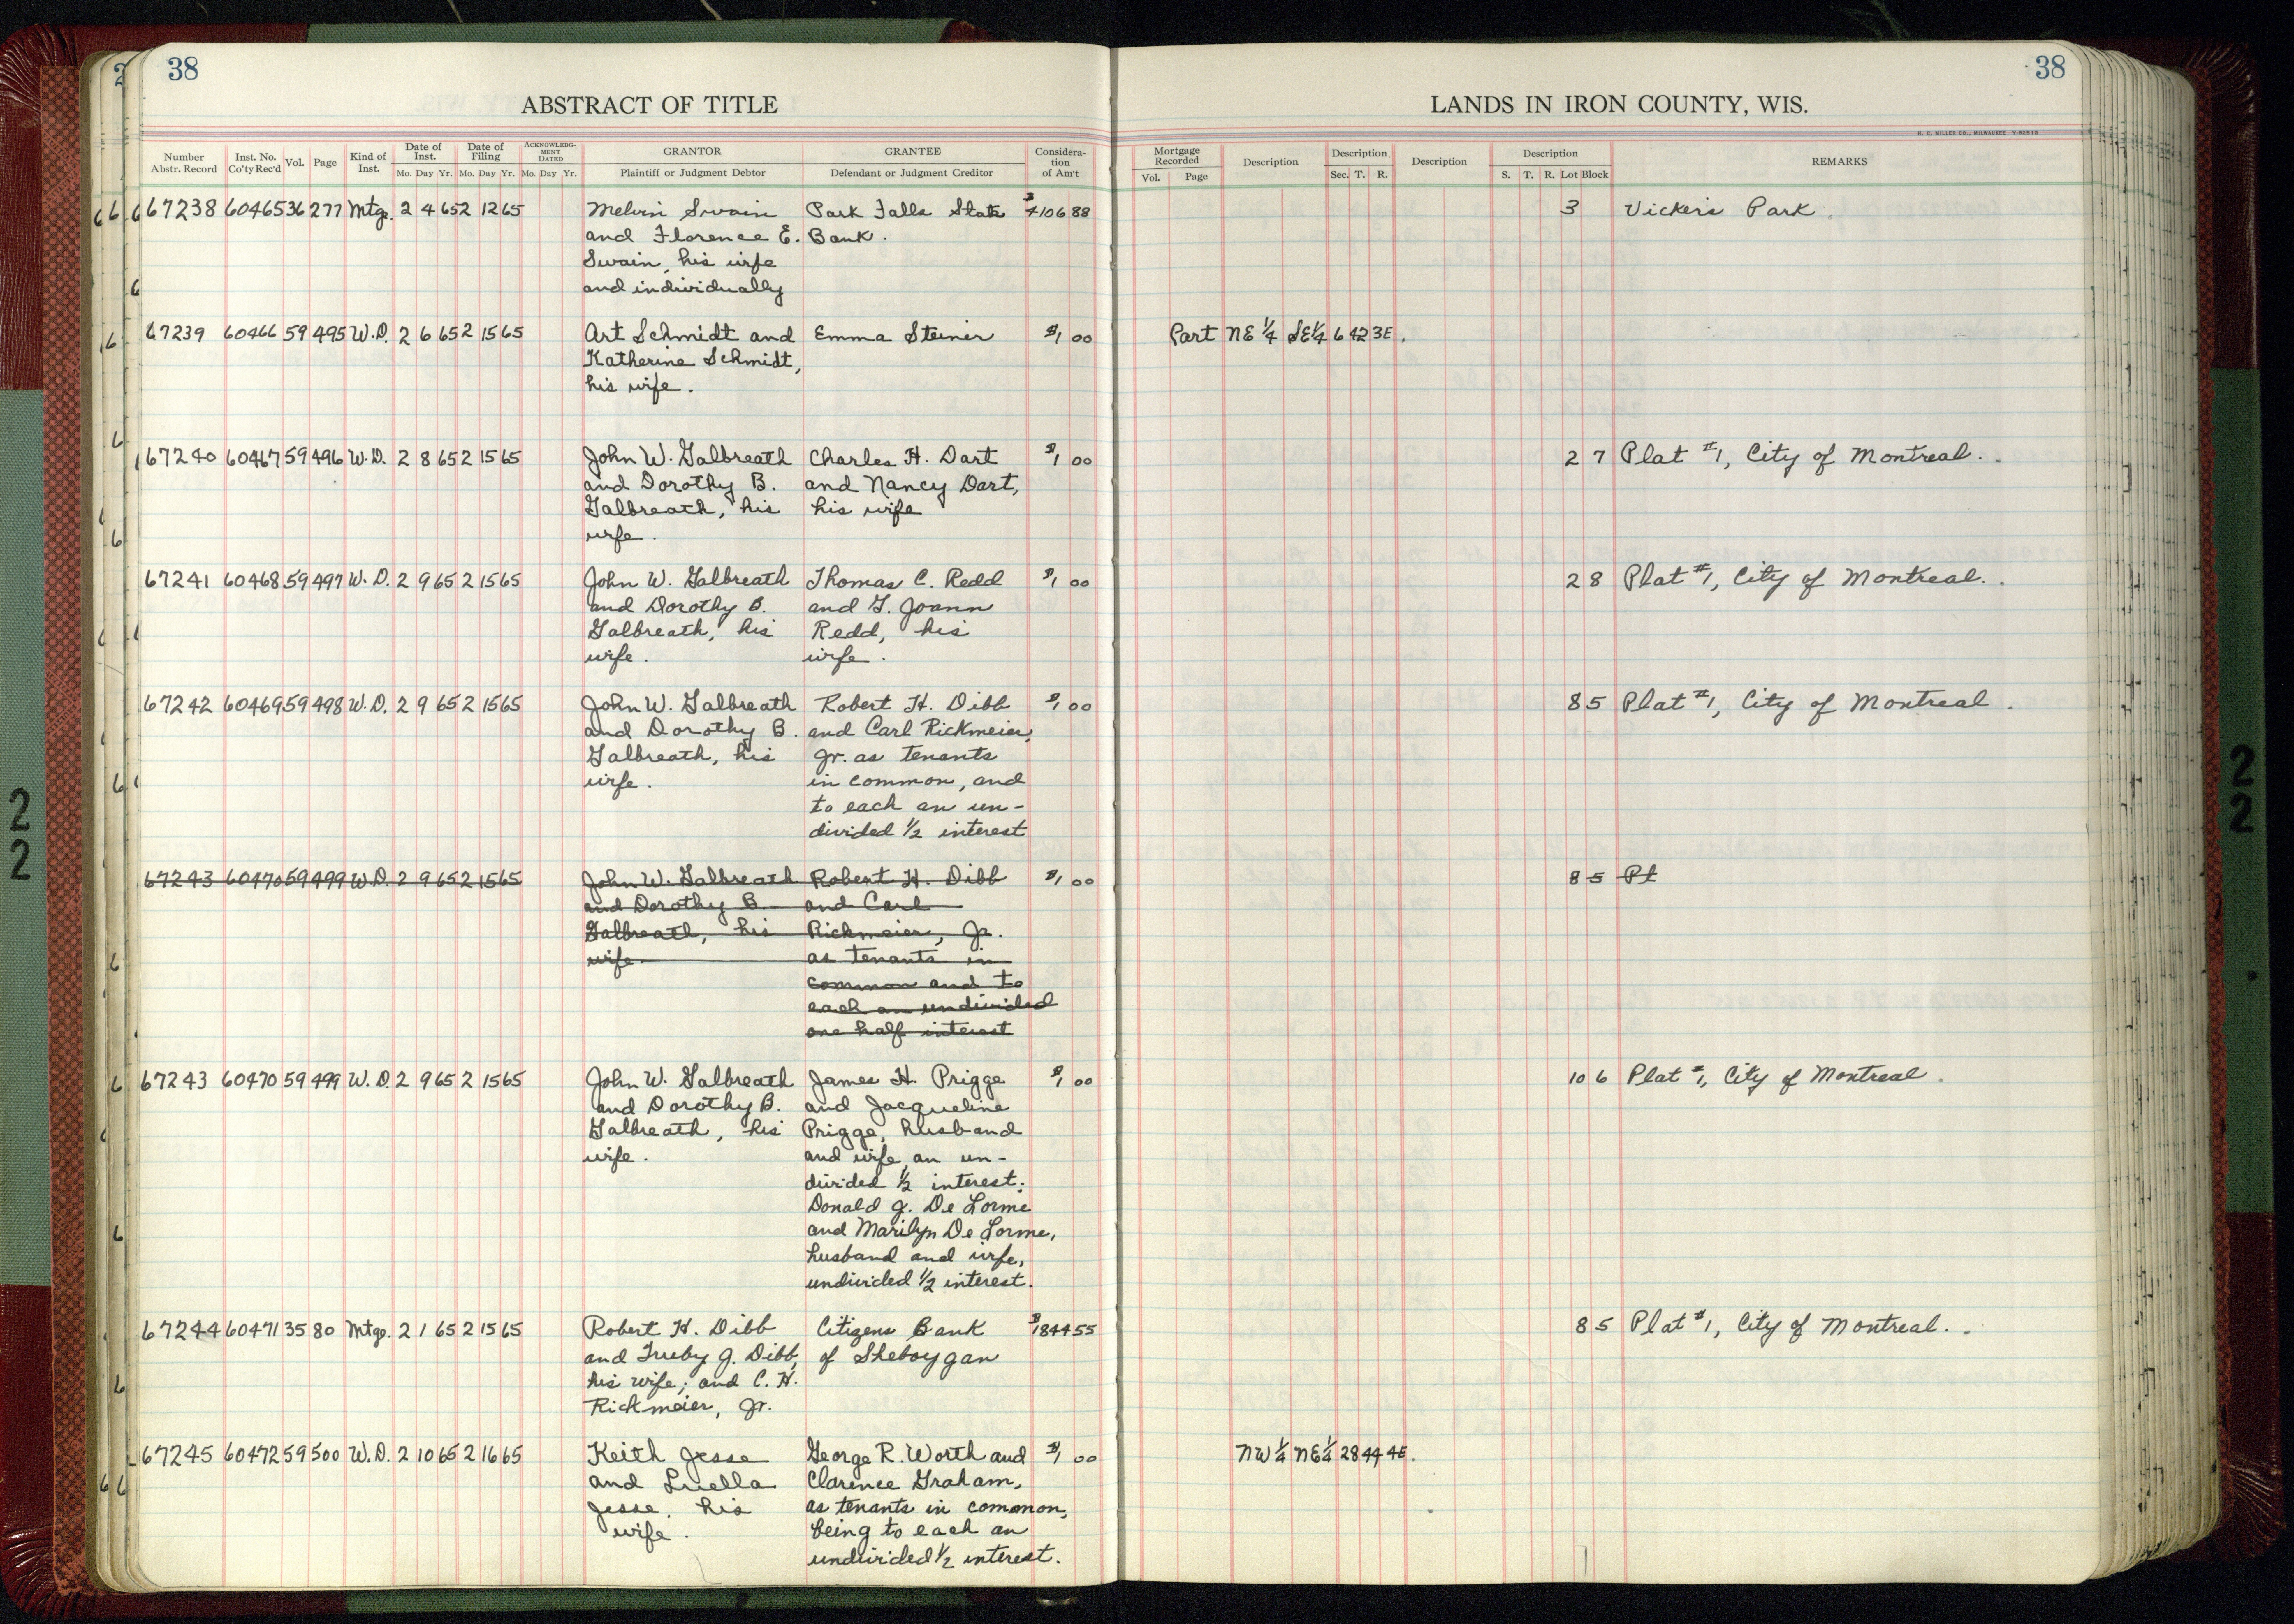 38
38
ABSTRACT OF TITLE
LANDS IN IRON COUNTY, WIS.
H. C. MILLER CO., MILWAUKEE Y-62515
Number Abstr. Record Inst. No. Co'ty Rec'd Vol. Page Kind of Inst. Date of Inst. Mo. Day Yr. Date of Filing Mo. Day Yr. ACKNOWLEDGMENT DATED Mo. Day Yr. GRANTOR Plaintiff or Judgment Debtor GRANTEE Defendant or Judgment Creditor Consideration of Am't Mortgage Recorded Vol. Page Description Description Sec. T. R. Description Description S. T. R. Lot Block REMARKS
67238 60465 36 277 Mtge. 2 4 65 2 12 65 Melvin Swain Park Falls State $4106 88 3 Vickers Park.
and Florence E. Bank.
Swain, his wife
and individually
67239 60466 59 495 W.D. 2 6 65 2 15 65 Art Schmidt and Emma Steiner $1 00 Part NE 1/4 SE 1/4 6 42 3E.
Katherine Schmidt,
his wife.
67240 60467 59 496 W.D. 2 8 65 2 15 65 John W. Galbreath Charles H. Dart $1 00 2 7 Plat #1, City of Montreal.
and Dorothy B. and Nancy Dart,
Galbreath, his his wife
wife.
67241 60468 59 497 W.D. 2 9 65 2 15 65 John W. Galbreath Thomas C. Redd $1 00 2 8 Plat #1, City of Montreal.
and Dorothy B. and G. Joann
Galbreath, his Redd, his
wife. wife.
67242 60469 59 498 W.D. 2 9 65 2 15 65 John W. Galbreath Robert H. Dibb $1 00 8 5 Plat #1, City of Montreal.
and Dorothy B. and Carl Rickmeier,
Galbreath, his Jr. as tenants
wife. in common, and
to each an un-
divided 1/2 interest
67243 60470 59 499 W.D. 2 9 65 2 15 65 John W. Galbreath Robert H. Dibb $1 00 8 5 Pl
and Dorothy B. and Carl
Galbreath, his Rickmeier, Jr.
wife as tenants in
common and to
each an undivided
one half interest
67243 60470 59 499 W.D. 2 9 65 2 15 65 John W. Galbreath James H. Prigge $1 00 10 6 Plat #1, City of Montreal.
and Dorothy B. and Jacqueline
Galbreath, his Prigge, husband
wife. and wife, an un-
divided 1/2 interest;
Donald J. De Lorme
and Marilyn De Lorme,
husband and wife,
undivided 1/2 interest.
67244 60471 35 80 Mtge. 2 1 65 2 15 65 Robert H. Dibb Citizens Bank $1844 55 8 5 Plat #1, City of Montreal.
and Trueby J. Dibb, of Sheboygan
his wife; and C. H.
Rickmeier, Jr.
67245 60472 59 500 W.D. 2 10 65 2 16 65 Keith Jesse George R. Worth and $1 00 NW 1/4 NE 1/4 28 44 4E.
and Luella Clarence Graham,
Jesse, his as tenants in common,
wife. being to each an
undivided 1/2 interest.
2
2
2
2